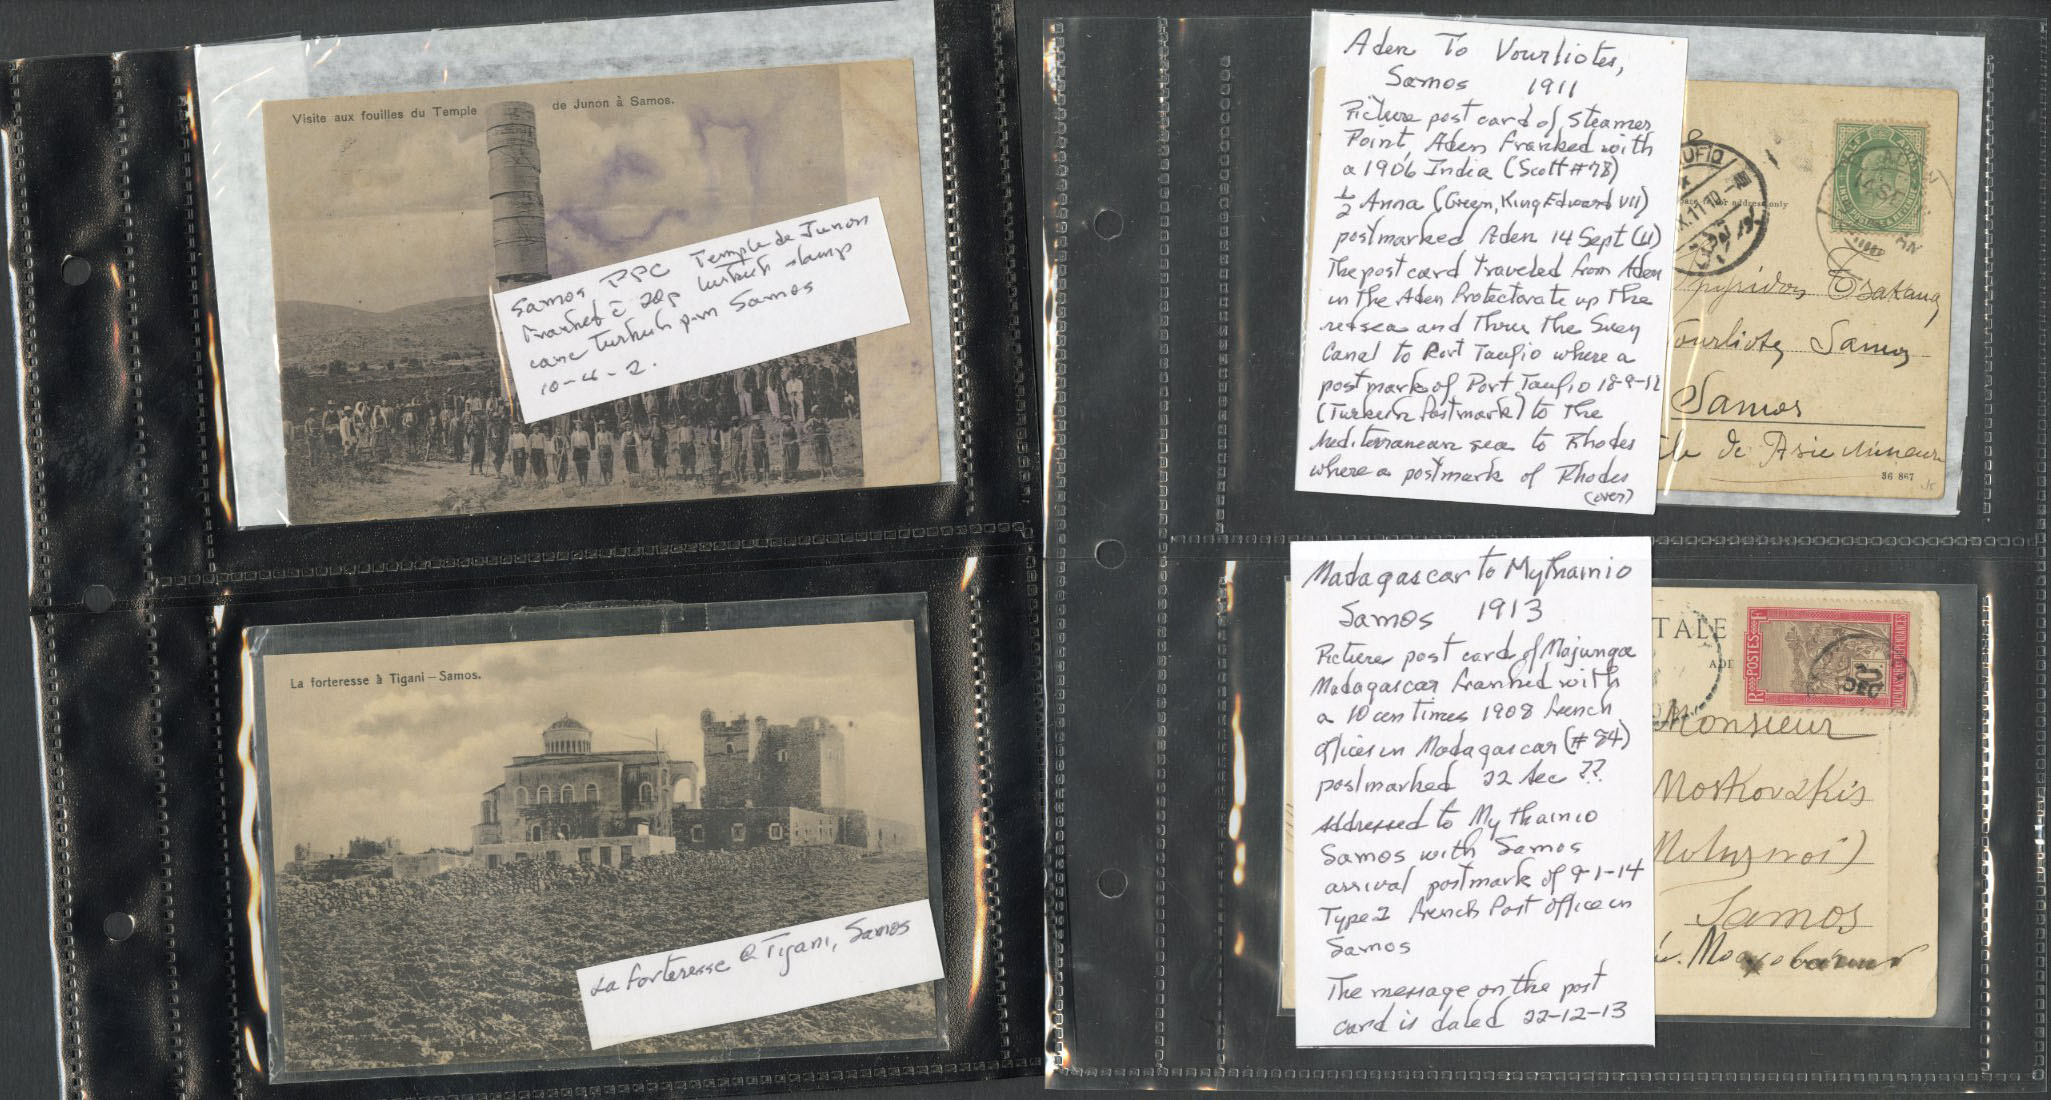 Visite aux fouilles du Temple de Junon à Samos.
Samos PPC Temple de Junon
franked c̄ 20p Turkish stamp
canc Turkish pm Samos
10-4-2.
La forteresse à Tigani – Samos.
La forteresse @ Tigani, Samos
Aden To Vourliotes,
Samos 1911
Picture post card of Steamer
Point, Aden franked with
a 1906 India (Scott #78)
1/2 Anna (Green, King Edward VII)
postmarked Aden 14 Sept (11)
The post card traveled from Aden
in the Aden Protectorate up the
red sea and thru the Suez
Canal to Port Taufio where a
postmark of Port Taufio 18-9-11
(Turkish Postmark) to the
Mediterranean sea to Rhodes
where a postmark of Rhodes
(over)
UFIQ
IX.11 10-
address only
INDIA POSTAGE & REVENUE
HALF ANNA
ADEN
Tsakana
ourliotes Samos
Samos
Ile de Asie Mineure
36 867
Madagascar to Mythainio
Samos 1913
Picture post card of Majunga
Madagascar franked with
a 10 centimes 1908 french
offices in Madagascar (#84)
postmarked 22 dec ??
addressed to Mythainio
Samos with Samos
arrival postmark of 9-1-14
Type 2 french Post office in
Samos
The message on the post
card is dated 22-12-13
TALE
ADR
POSTES
DEC
Monsieur
Samos